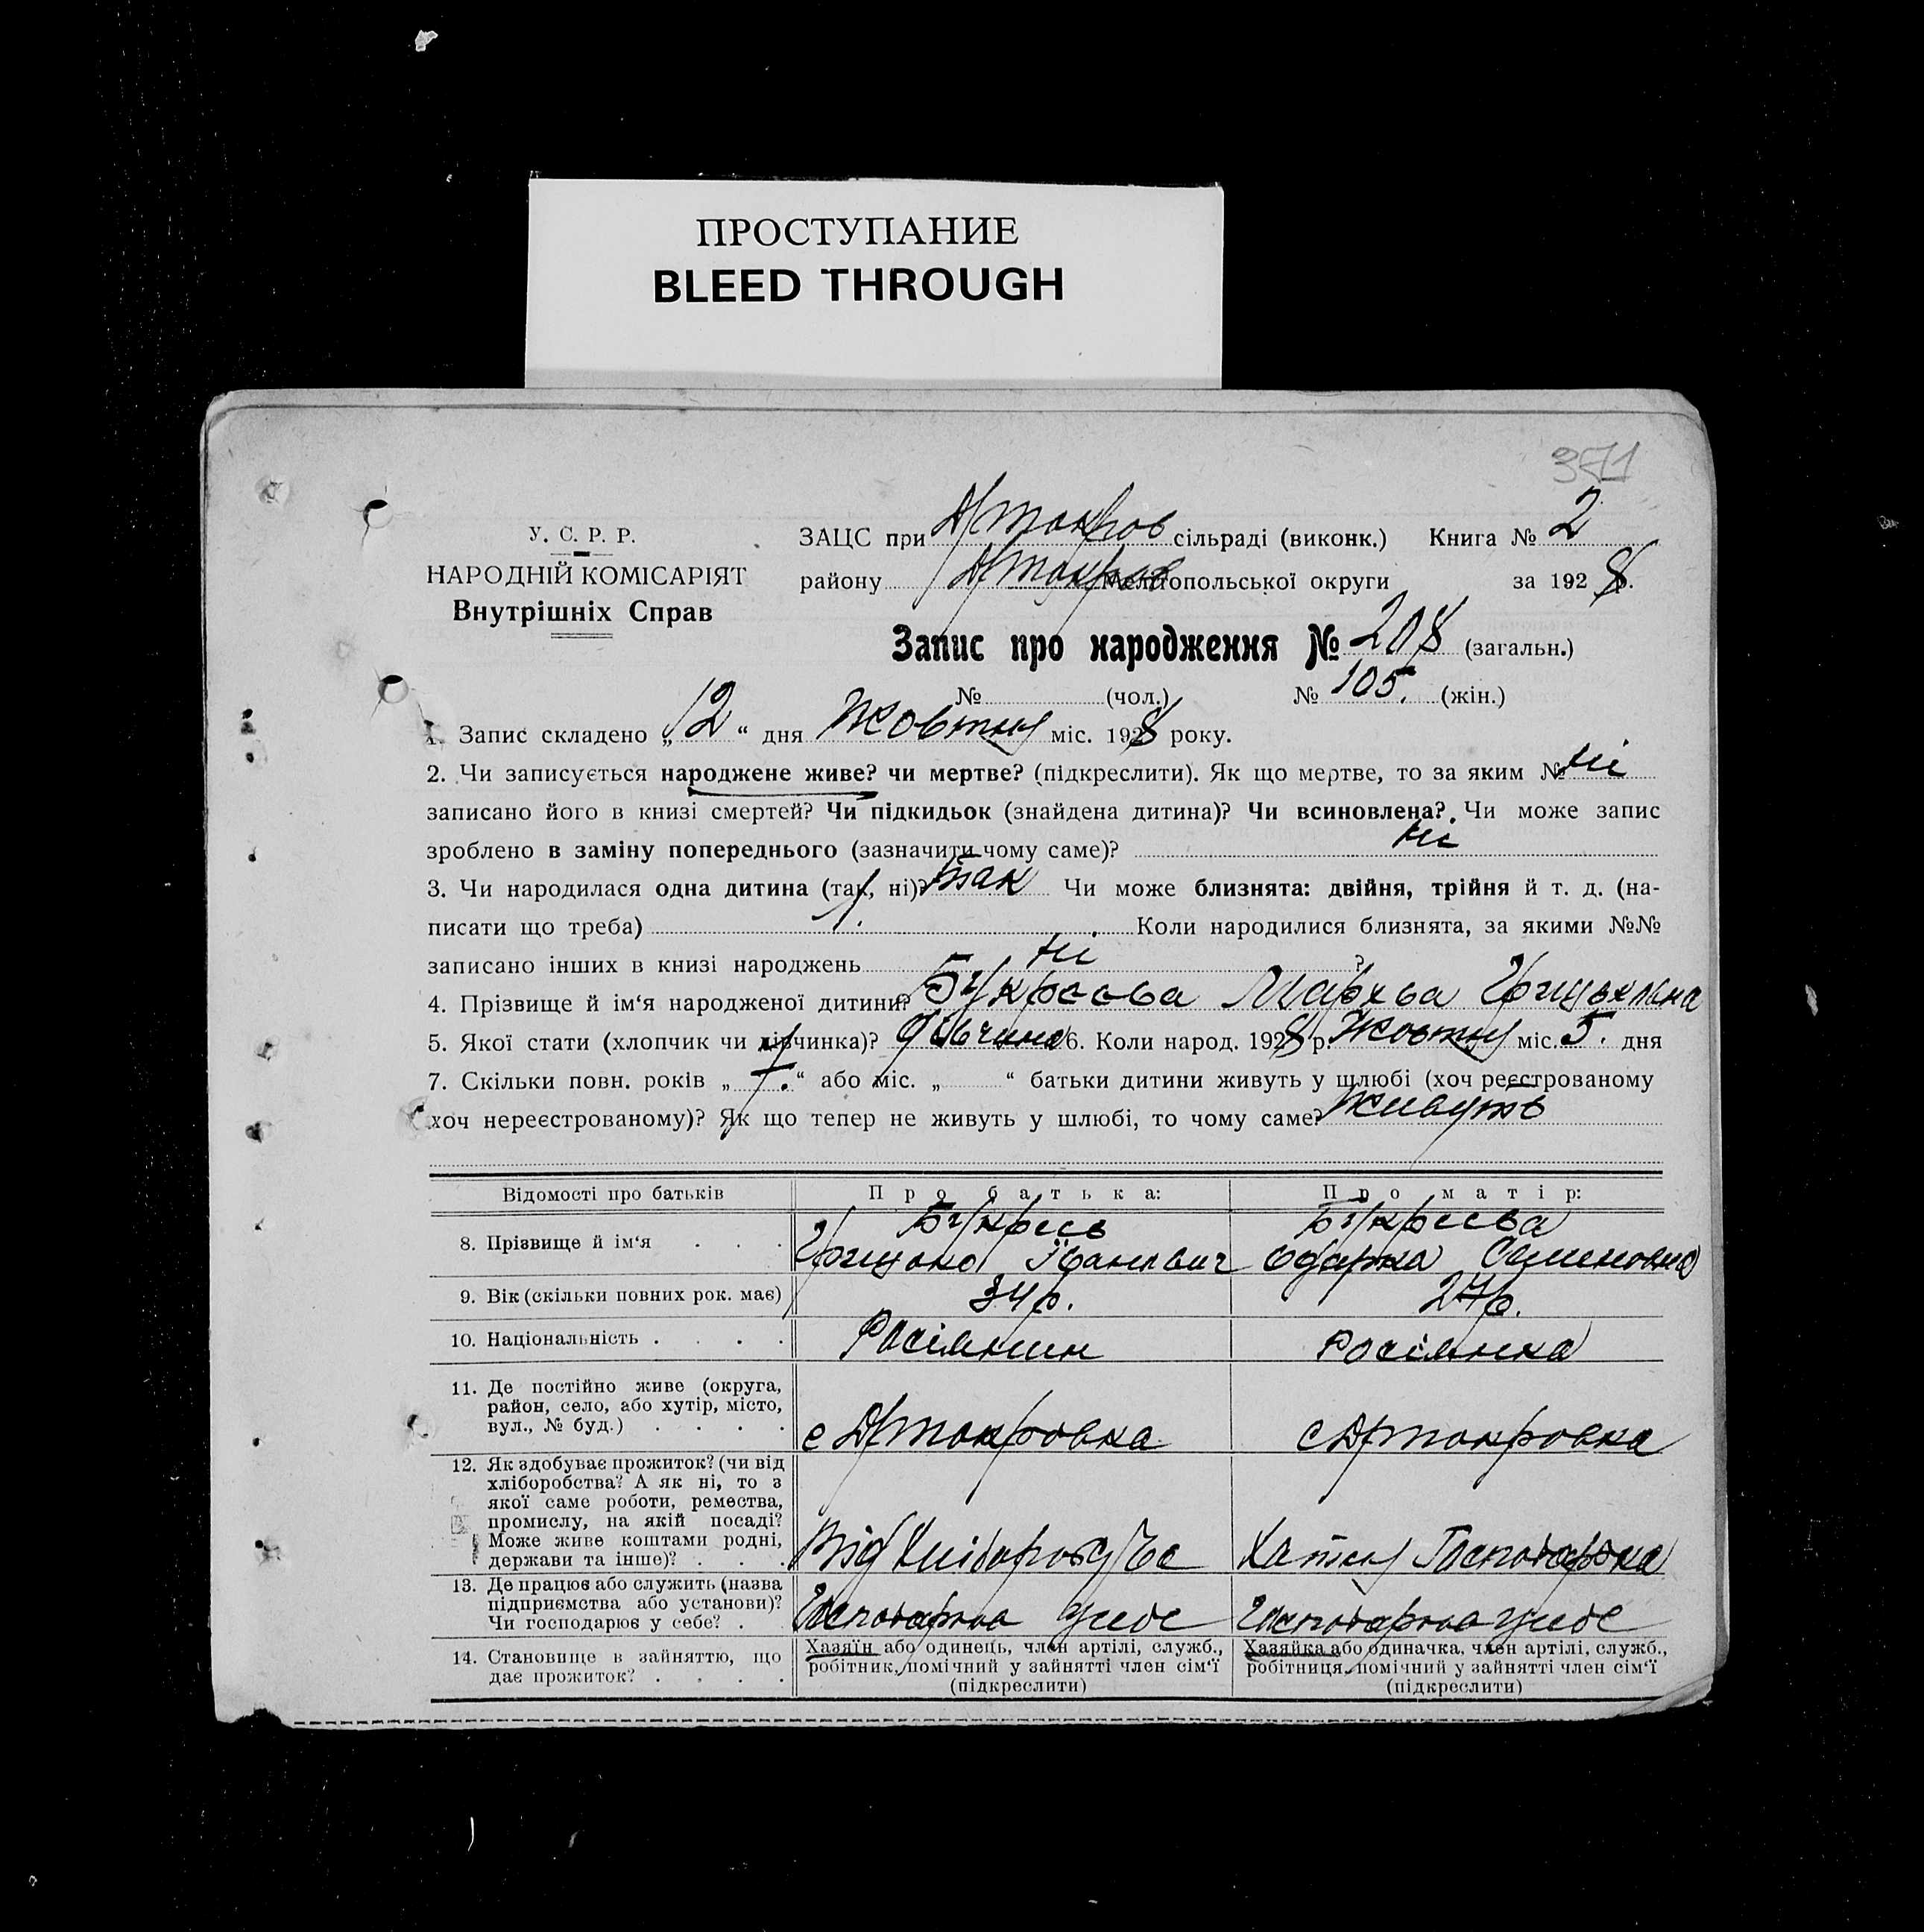 ПРОСТУПАНИЕ
BLEED THROUGH
371
У. С. Р. Р.
НАРОДНІЙ КОМІСАРІЯТ
Внутрішніх Справ
ЗАЦС при сільраді (виконк.) Книга № 2
району Мелітопольської округи за 1928 р.
Запис про народження № 208 (загальн.)
№ (чол.) № 105. (жін.)
1. Запис складено „12“ дня Жовтня міс. 1928 року.
2. Чи записується народжене живе? чи мертве? (підкреслити). Як що мертве, то за яким № ні
записано його в книзі смертей? Чи підкидьок (знайдена дитина)? Чи всиновлена? Чи може запис
зроблено в заміну попереднього (зазначити чому саме)? ні
3. Чи народилася одна дитина (так, ні)? так Чи може близнята: двійня, трійня й т. д. (на-
писати що треба) 1. Коли народилися близнята, за якими №№
записано інших в книзі народжень ні ?
4. Прізвище й ім‘я народженої дитини? Букреєва Мархва
5. Якої статі (хлопчик чи дівчинка)? дівчина 6. Коли народ. 1928 р. Жовтня міс. 5. дня
7. Скільки повн. років „7.“ або міс. „ “ батьки дитини живуть у шлюбі (хоч реєстрованому
хоч нереєстрованому)? Як що тепер не живуть у шлюбі, то чому саме? живуть
Відомості про батьків Про батька: Про матір:
8. Прізвище й ім‘я . . . Букреєв Іванович Букреєва Одарка Семеновна
9. Вік (скільки повних рок. має) 34 р. 27 р.
10. Національність . . . . Росіянин Росіянка
11. Де постійно живе (округа,
район, село, або хутір, місто,
вул., № буд.) . . . .
12. Як здобуває прожиток? (чи від
хліборобства? А як ні, то з
якої саме роботи, ремества,
промислу, на якій посаді?
Може живе коштами родні,
держави та інше)? . . . Від Хатня Господарка
13. Де працює або служить (назва
підприємства або установи)?
Чи господарює у себе? . . Господарка у себе Господарка у себе
14. Становище в зайняттю, що
дає прожиток? . . . .
Хазяїн або одинець, член артілі, служб.,
робітник, помічний у зайнятті член сім‘ї
(підкреслити)
Хазяйка або одиначка, член артілі, служб.,
робітниця, помічний у зайнятті член сім‘ї
(підкреслити)